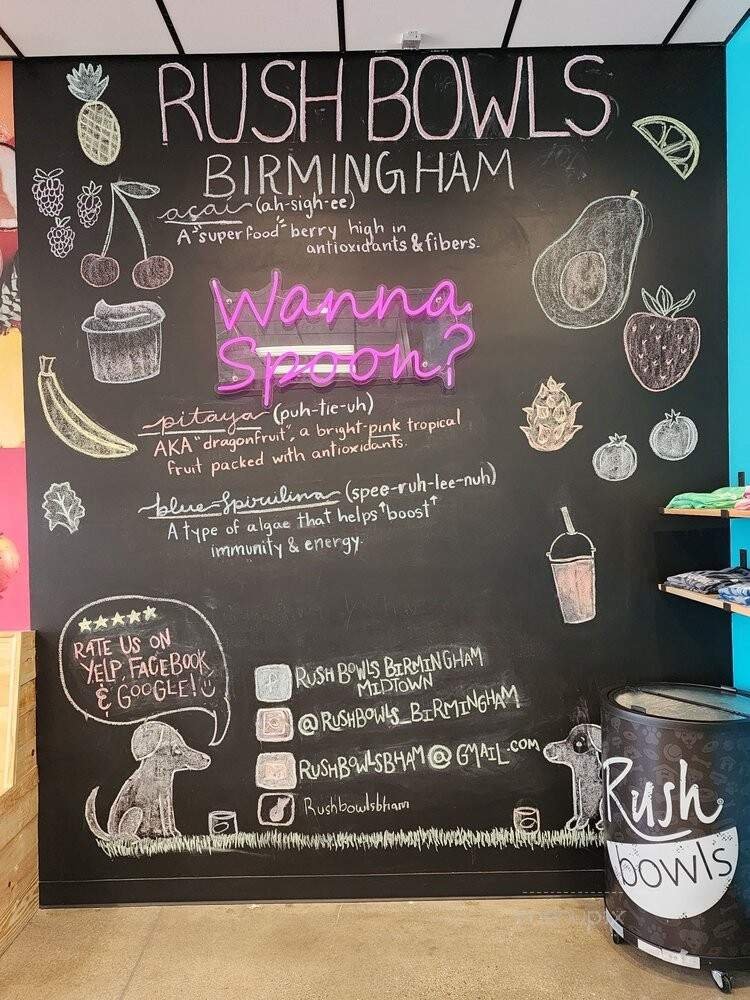 RUSH BOWLS
BIRMINGHAM
açai (ah-sigh-ee)
A "superfood" berry high in
antioxidants & fibers.
Wanna
Spoon?
pitaya (puh-tie-uh)
AKA "dragonfruit", a bright-pink tropical
fruit packed with antioxidants.
blue-spirulina (spee-ruh-lee-nuh)
A type of algae that helps ↑boost↑
immunity & energy.
RATE US ON
YELP, FACEBOOK
& GOOGLE!
RUSH BOWLS BIRMINGHAM
MIDTOWN
@RUSHBOWLS_BIRMINGHAM
RUSHBOWLSBHAM@GMAIL.COM
Rushbowlsbham
Rush
bowls